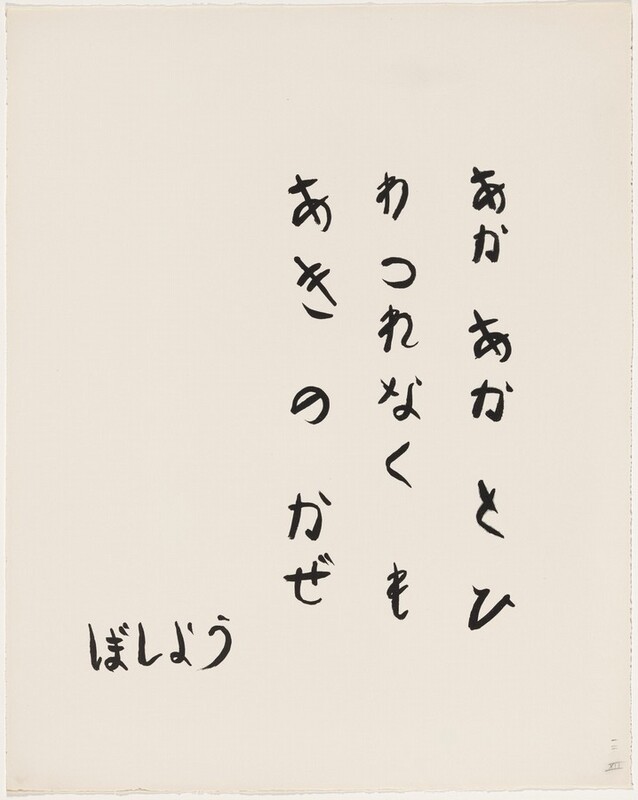 あか あか と ひ
わ つれなく も
あき の かぜ
ぼしよう